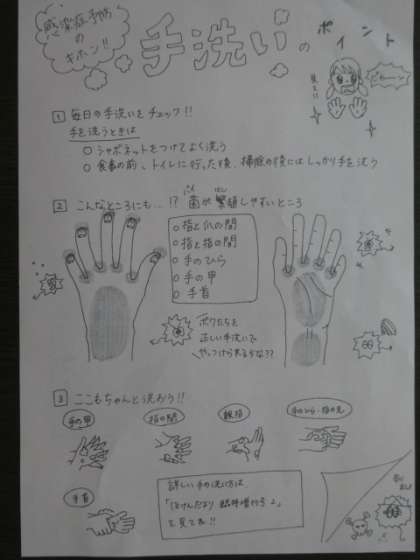 感染症予防
の
キホン!!
手洗いのポイント
1 毎日の手洗いをチェック!!
手を洗うときは
○ シャボネットをつけてよく洗う
○ 食事の前、トイレに行った後、掃除の後にはしっかり手を洗う
2 こんなところにも…!? 菌が繁殖しやすいところ
○ 指と爪の間
○ 指と指の間
○ 手のひら
○ 手の甲
○ 手首
ボクたちを
正しい手洗いで
やっつけられるかな??
3 ここもちゃんと洗おう!!
手の甲
指の間
親指
手のひら・指の先
手首
詳しい手の洗い方は
「ほけんだより 臨時増刊号2」
を見てね!!